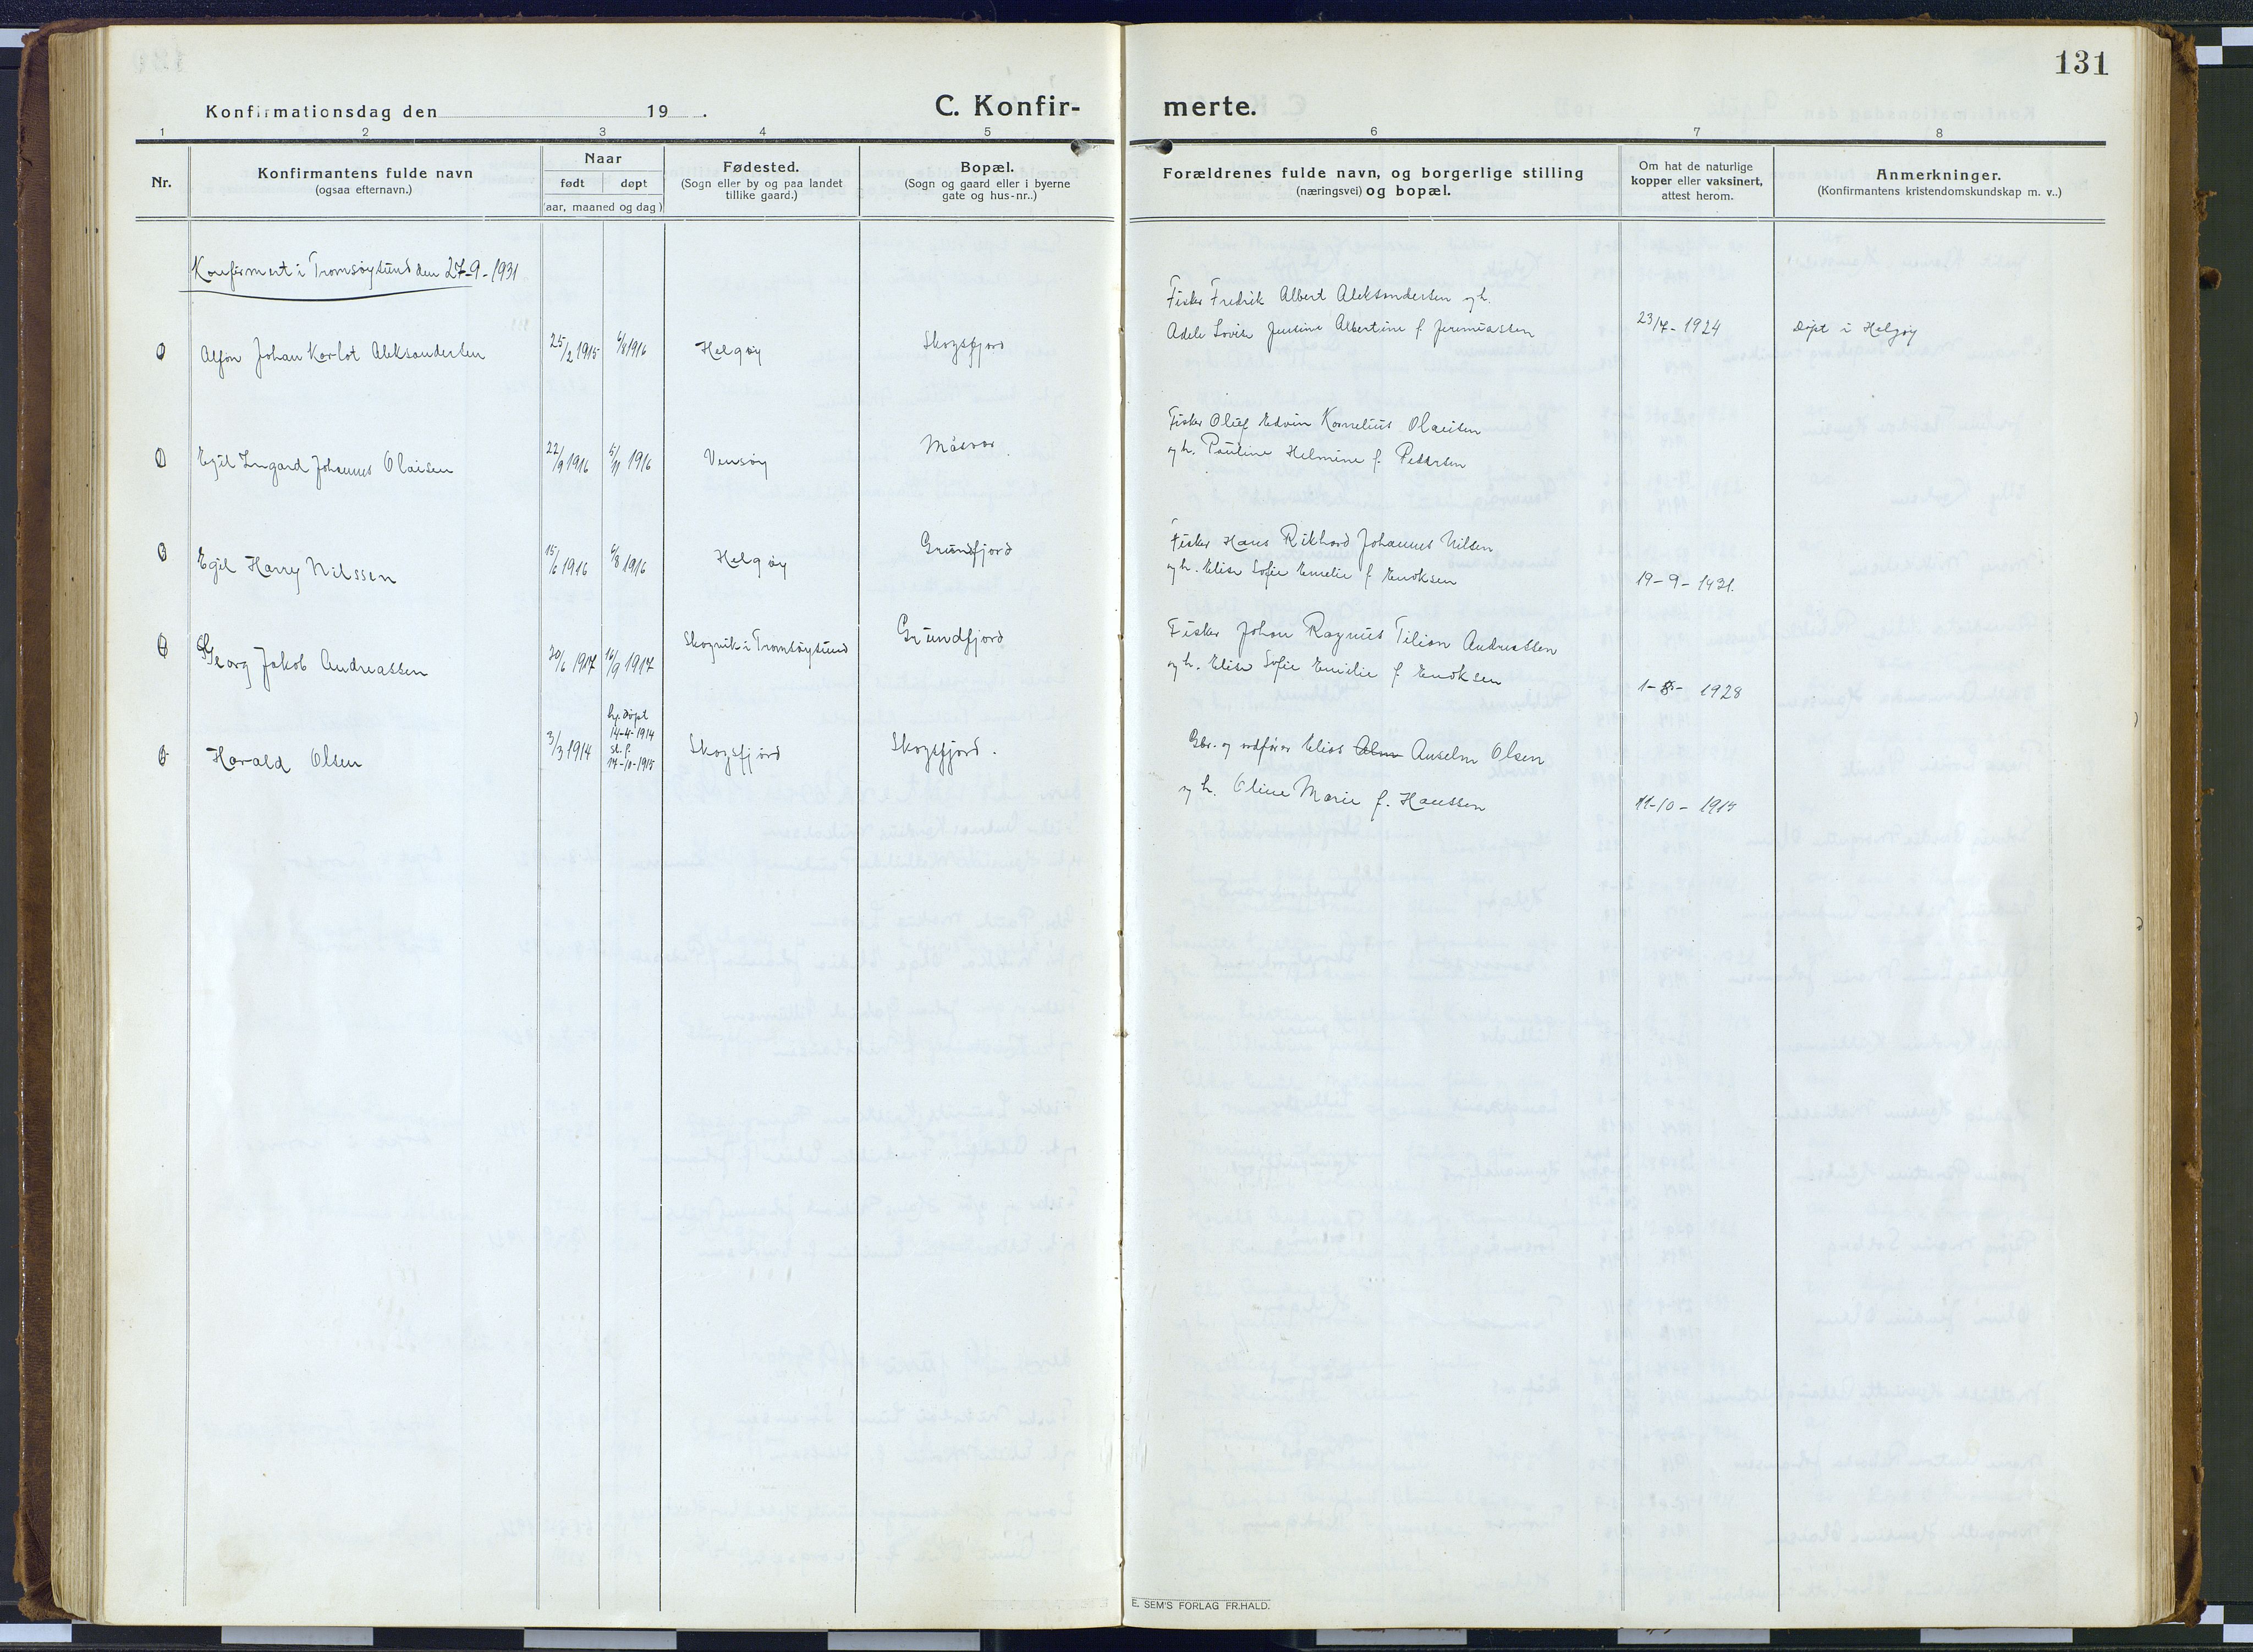 131
Konfirmationsdag den 19 .
C. Konfir-
merte.
1 2 3 4 5 6 7 8
Nr.
Konfirmantens fulde navn
(ogsaa efternavn.)
Naar
født døpt
(aar, maaned og dag)
Fødested.
(Sogn eller by og paa landet
tillike gaard.)
Bopæl.
(Sogn og gaard eller i byerne
gate og hus-nr..)
Forældrenes fulde navn, og borgerlige stilling
(næringsvei) og bopæl.
Om hat de naturlige
kopper eller vaksinert,
attest herom.
Anmerkninger.
(Konfirmantens kristendomskundskap m. v..)
Konfirmert i Tromsøysund den 27-9-1931
Alfon Johan Karlot Aleksandersen 25/2 1915 6/8 1916 Helgøy Skogsfjord
Fisker Fredrik Albert Aleksandersen og h.
Adele Lovise Jensine Albertine f. Jeremiassen 23/7-1924 døpt i Helgøy
Egil Ingard Johannes Olaisen 22/9 1916 5/11 1916 Vensøy Måsvær
Fisker Oluf Edvin Kornelius Olaisen
og h. Pauline Helmine f. Pedersen
3 Egil Harry Nilssen 15/6 1916 6/8 1916 Helgøy Grundfjord
Fisker Hans Rikhard Johannes Nilsen
og h. Elise Sofie Emelie f. Enoksen 19-9-1921.
Georg Jakob Andreassen 30/6 1917 16/9 1917 Skogvik i Tromsøysund Grundfjord
Fisker Johan Ragnus Tilian Andreassen
og h. Elise Sofie Emelie f. Enoksen 1-8- 1928
Harald Olsen 3/3 1914 hj.døpt
14-4-1914
st. f.
17-10-1915 Skogsfjord Skogsfjord.
Gbr. og ordfører Elias Anselm Olsen
og h. Oline Marie f. Hanssen 11-10-1915
E. SEM'S FORLAG FR.HALD.